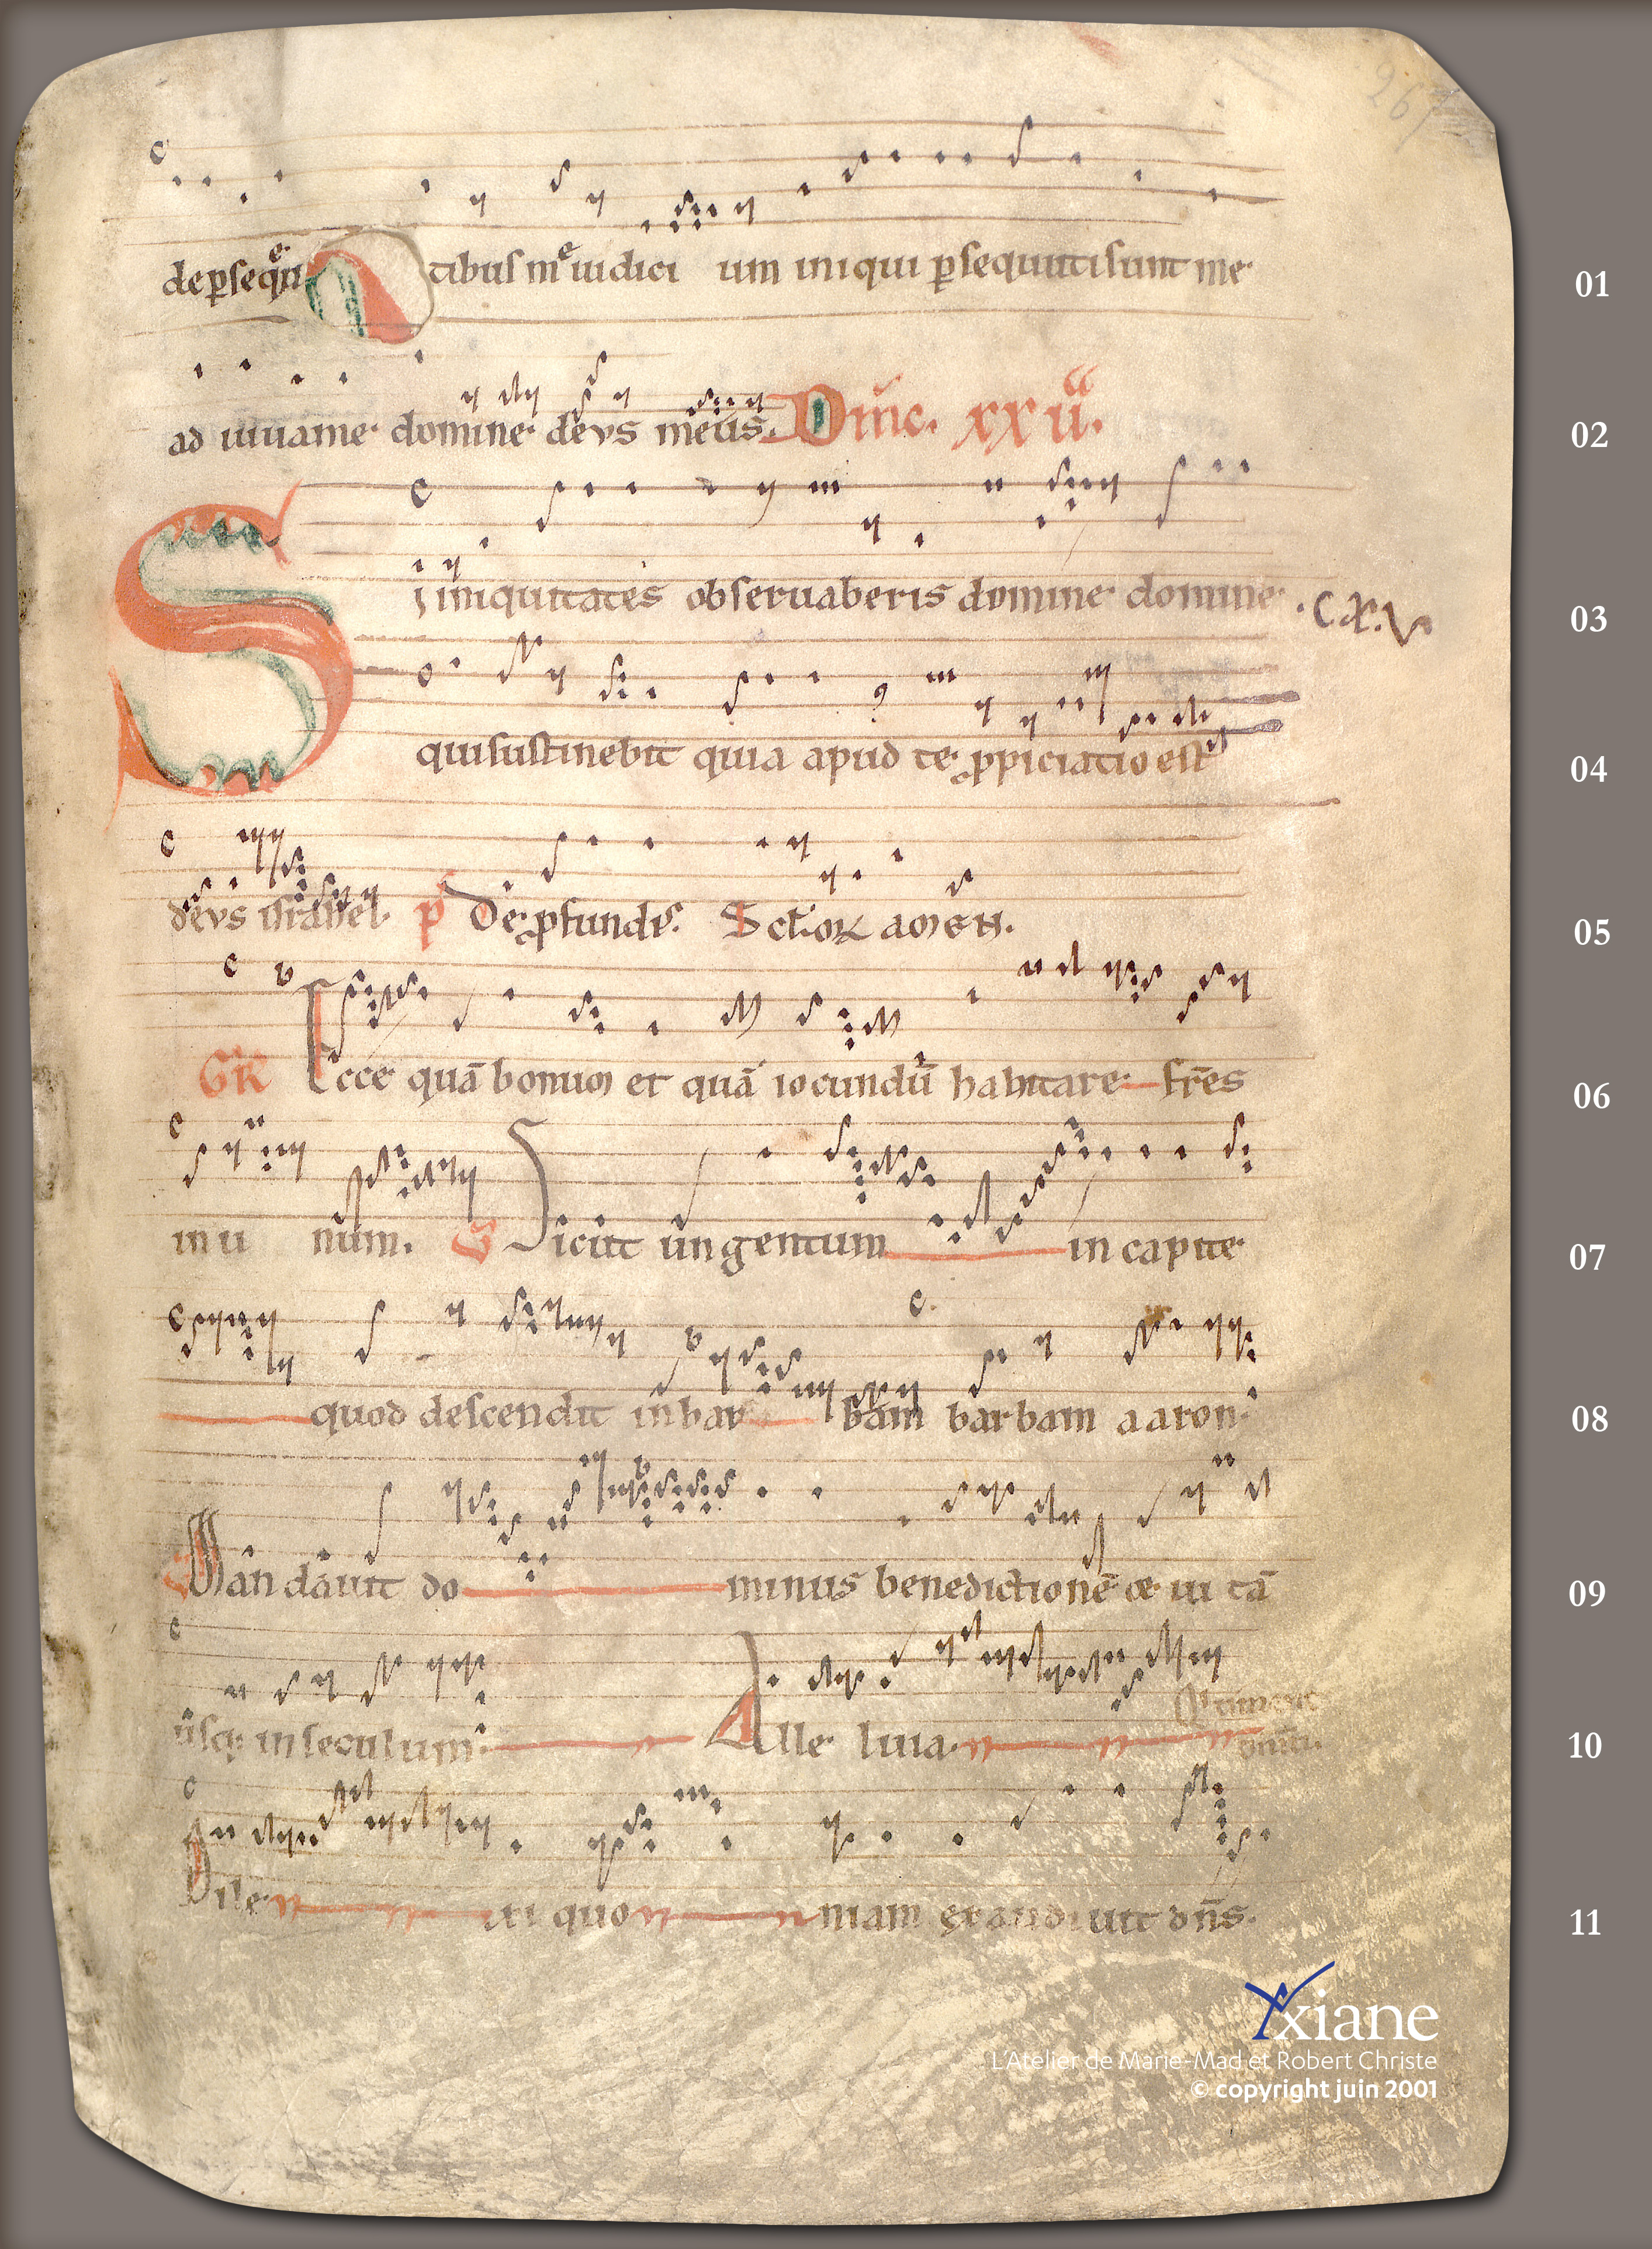 267
de p̱seq̄n tibus me iudici um iniqui p̱sequuti sunt me
01
ad iuuame domine deus meus. Dm̄c. xx ii.
02
Si iniquitates obseruaberis domine domine
03
qui sustinebit quia apud te ꝓpiciatio est
04
deus israhel. p̄ De ꝓfundis. Sct̄oꝝ amen.
05
GR Ecce quā bonum et quā iocundū habitare fr̄es
06
in u num. Sicut ungentum in capite
07
quod descendit in bar bam barbam aaron.
08
Mandauit do minus benedictionē & ui tā
09
usq; in seculum. Alle luia.
10
Dile xi quo niam exaudiuit dn̄s.
11
Axiane
L'Atelier de Marie-Mad et Robert Christe
© copyright juin 2001